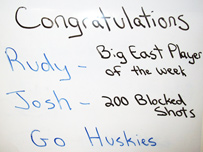 Congratulations
Rudy - Big East Player
of the week
Josh - 200 Blocked
Shots
Go Huskies